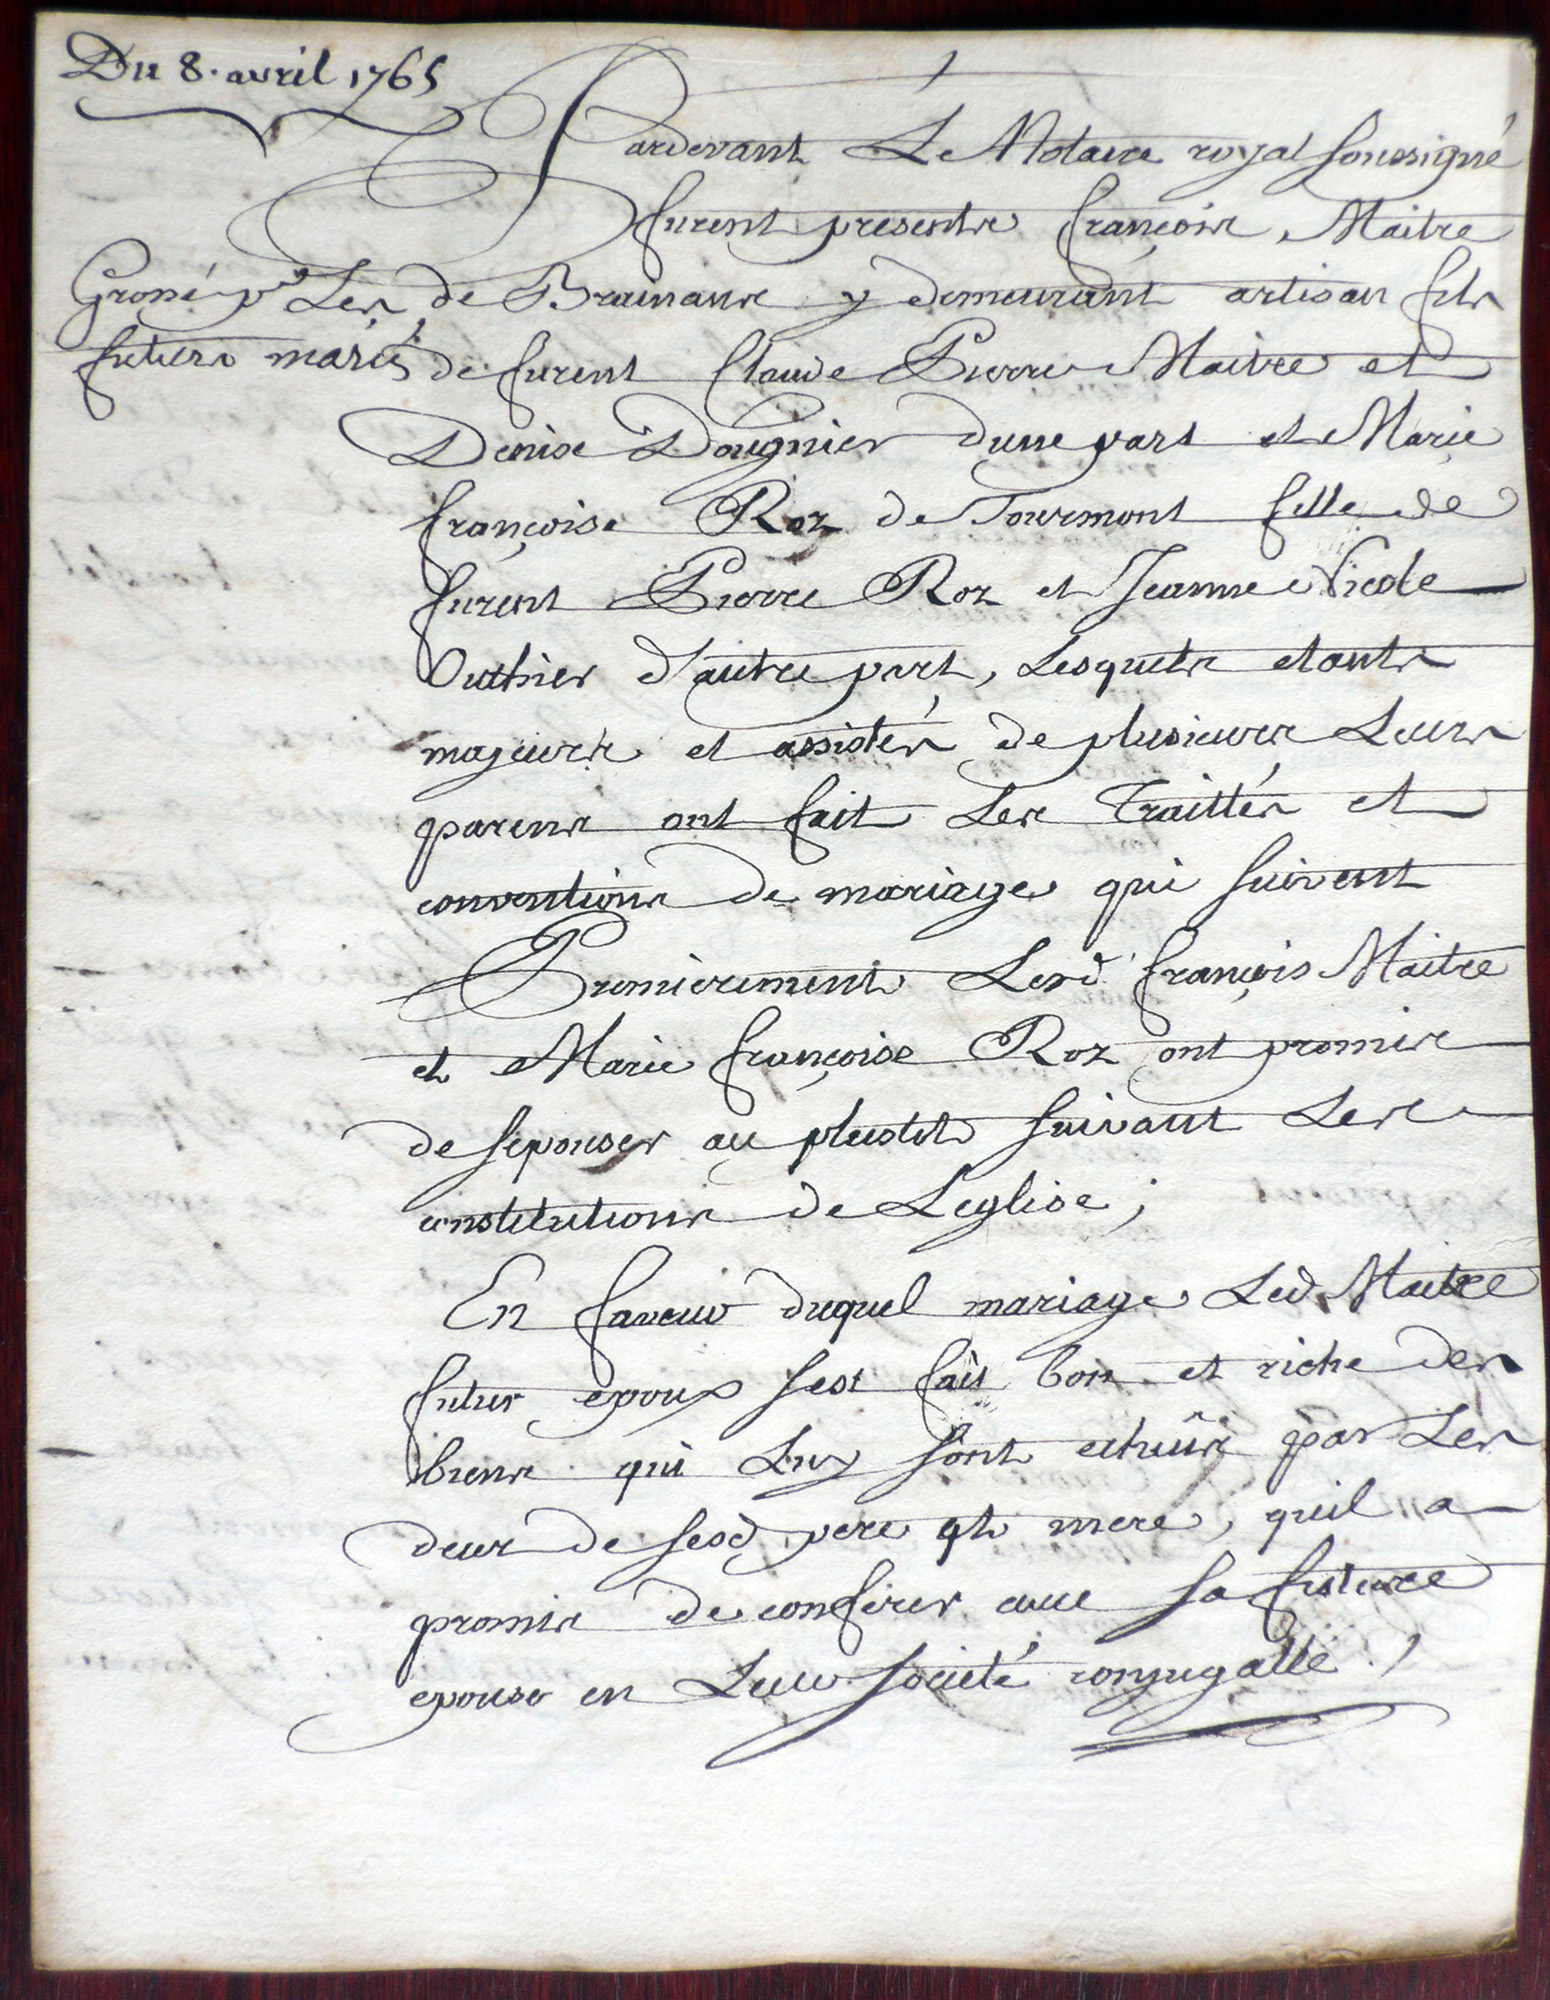 Du 8. avril 1765
Pardevant Le Notaire royal soussigné
furent presents françois Maitre
Grossé pr Les
futurs mariés
de Brainans y demeurant artisan fils
de furent Claude Pierre Maitre et
Denise Dougnier dune part et Marie
françoise Roz de Tourmont fille de
furent Pierre Roz et Jeanne Nicole
Outhier d'autre part, Lesquels etants
majeurs et assistés de plusieurs Leurs
parens ont fait Les Traittés et
conventions de mariage qui suivent
Premierement Lesd françois Maitre
et Marie françoise Roz ont promis
de sepouser au plustot suivant Les
constitutions de Leglise ;
En faveur duquel mariage Led Maitre
futur epoux sest fait bon et riche des
biens qui Luy sont echeûs par Les
deux de sesd pere et mere, quil a
promis de conferer avec sa future
epouse en Leur societé conjugalle ./